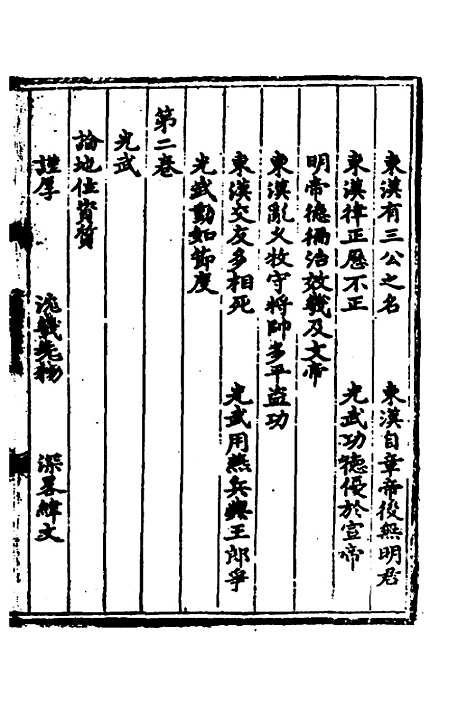 東漢有三公之名 東漢自章帝後無明君
東漢律正厯不正 光武功德優於宣帝
明帝德徧治效幾及文帝
東漢亂乂牧守將帥多平盜功
東漢交友多相死 光武用燕兵與王郎爭
光武動如節度
第二卷
光武
論地位資質
謹厚 沈幾先物 深畧緯文